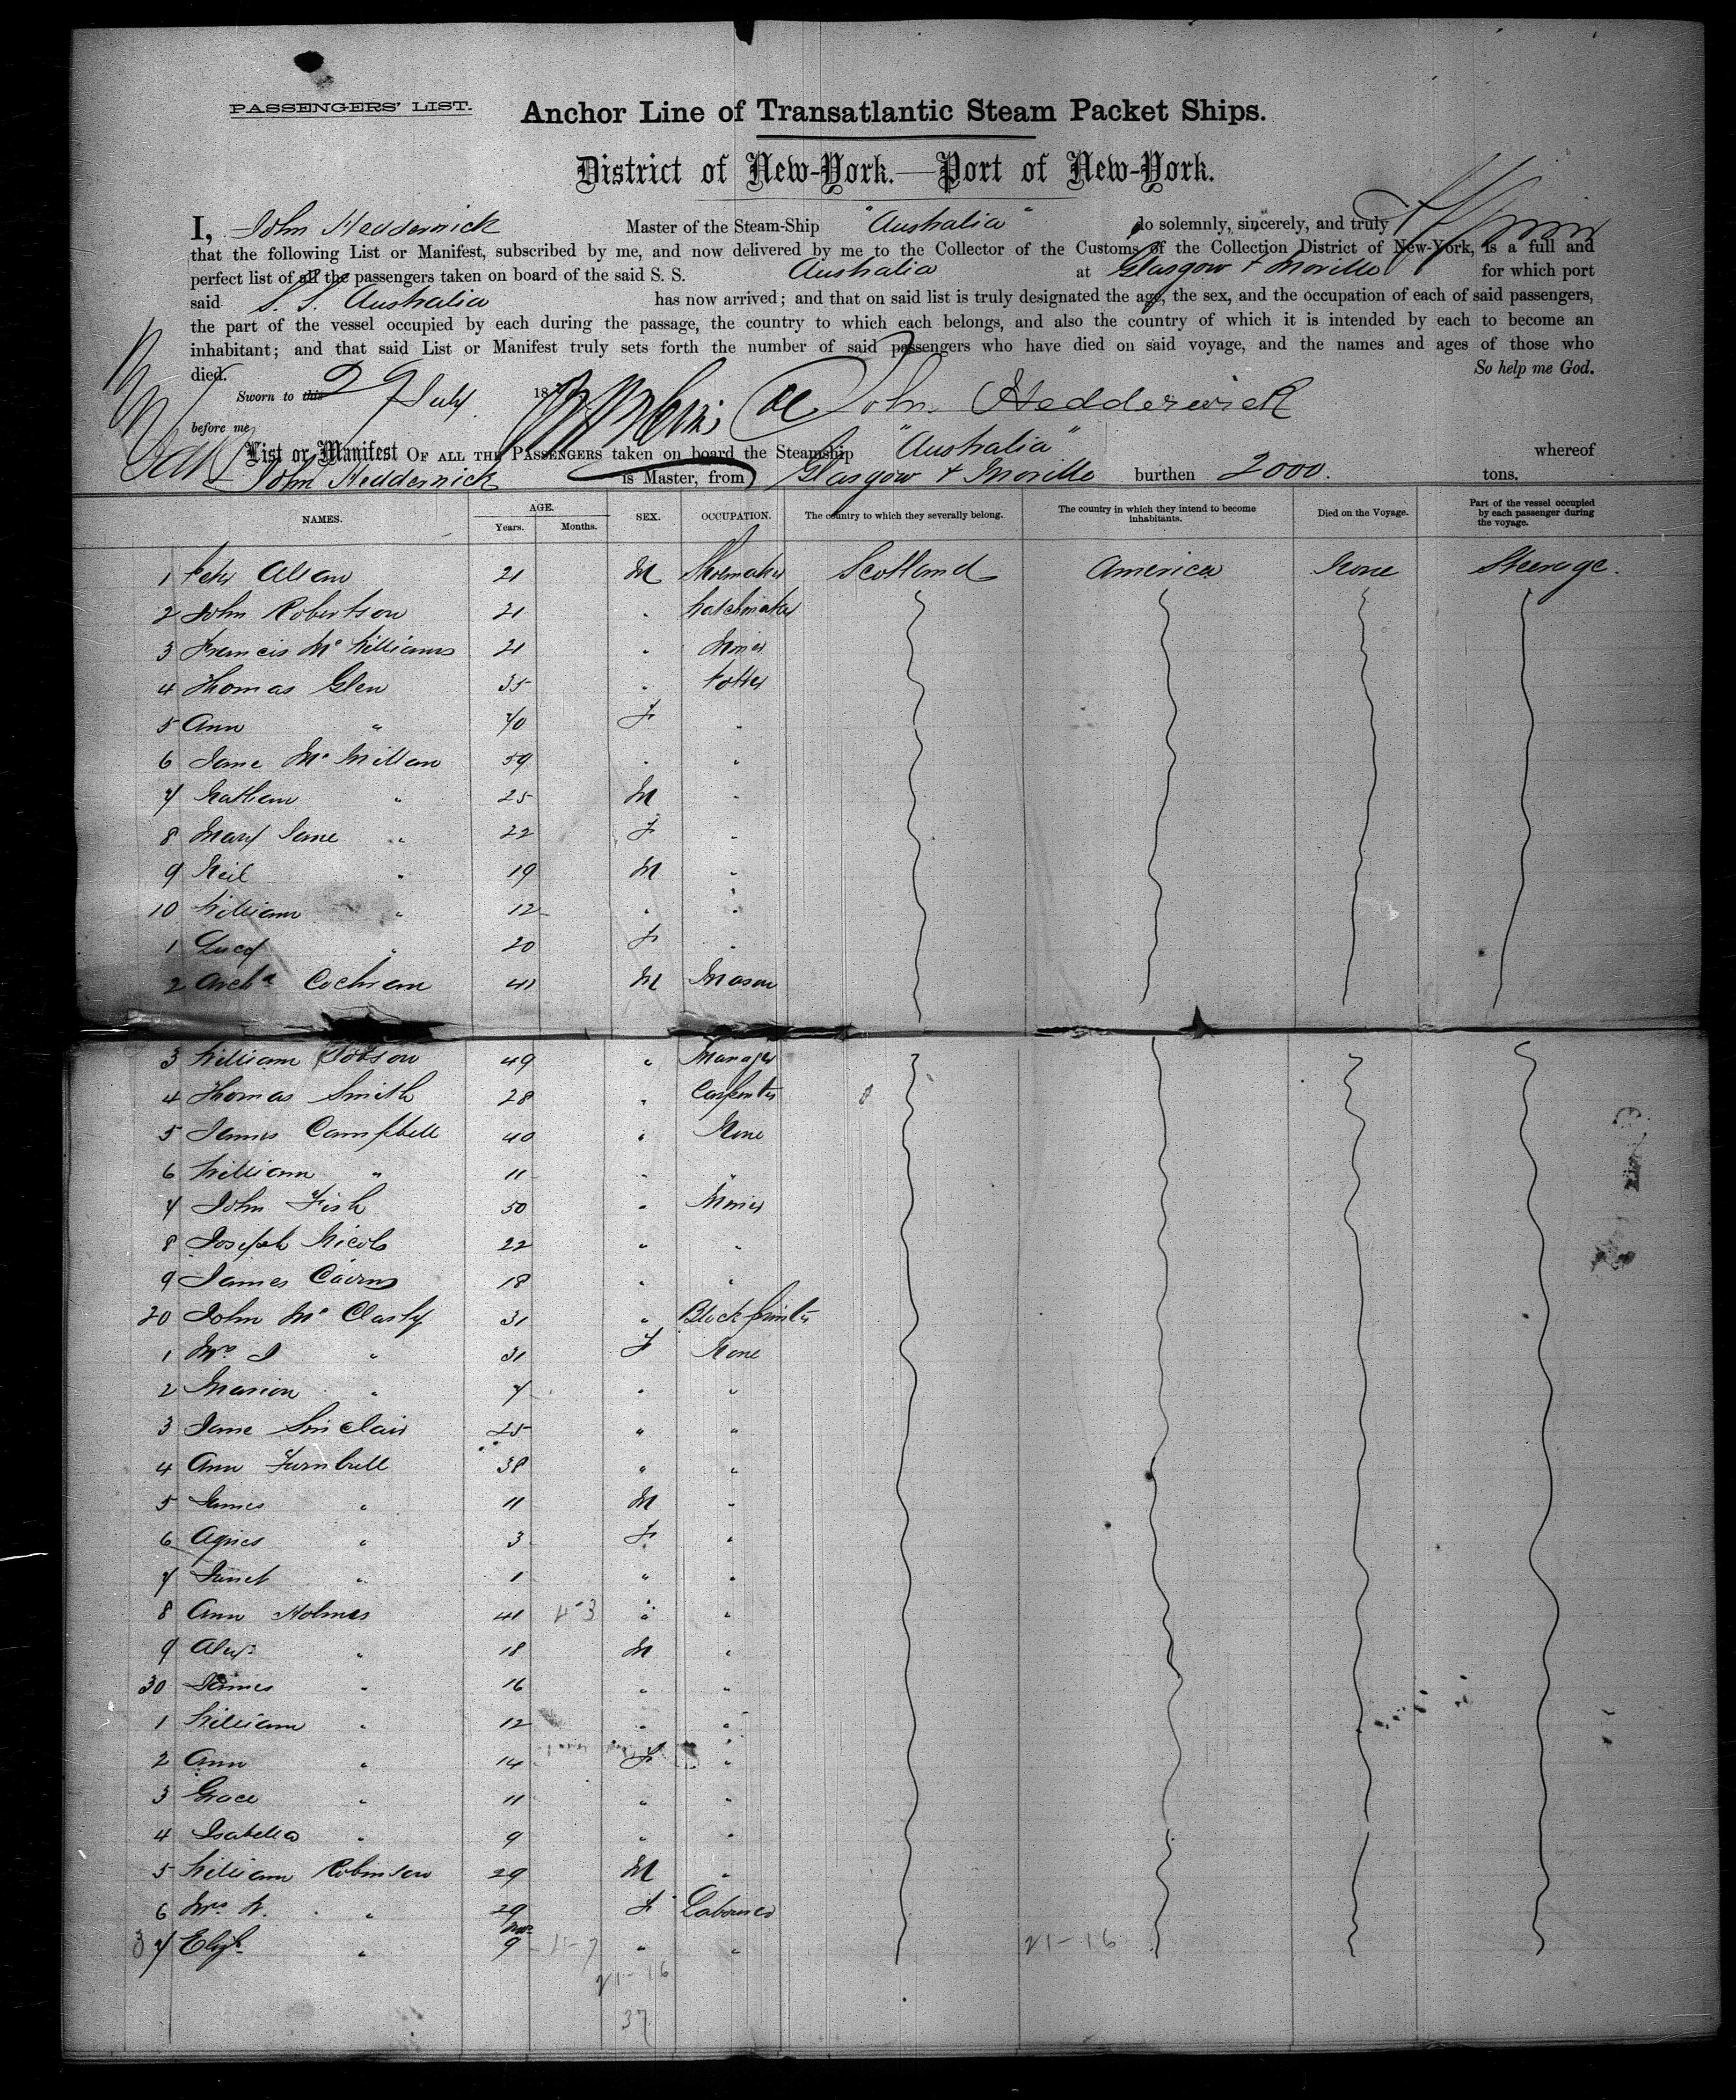 PASSENGERS' LIST.
Anchor Line of Transatlantic Steam Packet Ships.
District of New-York.—Port of New-York.
I, John Hedderwick Master of the Steam-Ship "Australia" do solemnly, sincerely, and truly affirm
that the following List or Manifest, subscribed by me, and now delivered by me to the Collector of the Customs of the Collection District of New-York, is a full and
perfect list of all the passengers taken on board of the said S. S. Australia at Glasgow + Moville for which port
said S. S. Australia has now arrived; and that on said list is truly designated the age, the sex, and the occupation of each of said passengers,
the part of the vessel occupied by each during the passage, the country to which each belongs, and also the country of which it is intended by each to become an
inhabitant; and that said List or Manifest truly sets forth the number of said passengers who have died on said voyage, and the names and ages of those who
died. So help me God.
Sworn to this 29 July 187 John Hedderwick
before me
List or Manifest OF ALL THE PASSENGERS taken on board the Steamship "Australia" whereof
John Hedderwick is Master, from Glasgow + Moville burthen 2000. tons.
NAMES. AGE. Years. Months. SEX. OCCUPATION. The country to which they severally belong. The country in which they intend to become inhabitants. Died on the Voyage. Part of the vessel occupied by each passenger during the voyage.
1 Peter Allan 21 M Shoemaker Scotland America None Steerage.
2 John Robertson 21 " Watchmaker
3 Francis Mc Williams 21 " Miner
4 Thomas Glen 35 " Potter
5 Ann " 40 F "
6 Jane Mc Millan 59 " "
7 Nathan " 25 M "
8 Mary Jane " 22 F "
9 Neil " 19 M "
10 William " 12 " "
1 Lucy " 20 F "
2 Archd Cochran 40 M Mason
3 William Dobson 49 " Manager
4 Thomas Smith 28 " Carpenter
5 James Campbell 40 " None
6 William " 11 " "
7 John Fish 50 " Miner
8 Joseph Nicols 22 " "
9 James Cairns 18 " "
20 John Mc Clasty 31 " Block printer
1 Mrs J " 31 F None
2 Marion " 7 " "
3 Jane Sinclair 25 " "
4 Ann Turnbull 38 " "
5 James " 11 M "
6 Agnes " 3 F "
7 Janet " 1 " "
8 Ann Holmes 41 " "
9 Alexr " 18 M "
30 James " 16 " "
1 William " 12 " "
2 Ann " 14 F "
3 Grace " 11 " "
4 Isabella " 9 " "
5 William Robinson 29 M "
6 Mrs W. " 29 F Labourer
37 Elizh " 9 mos " " 21-16
21-16
37